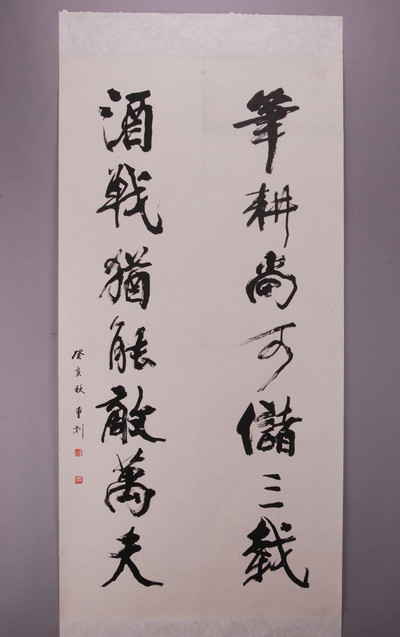 筆耕尚可儲三載
酒戰猶能敵萬夫
癸亥秋